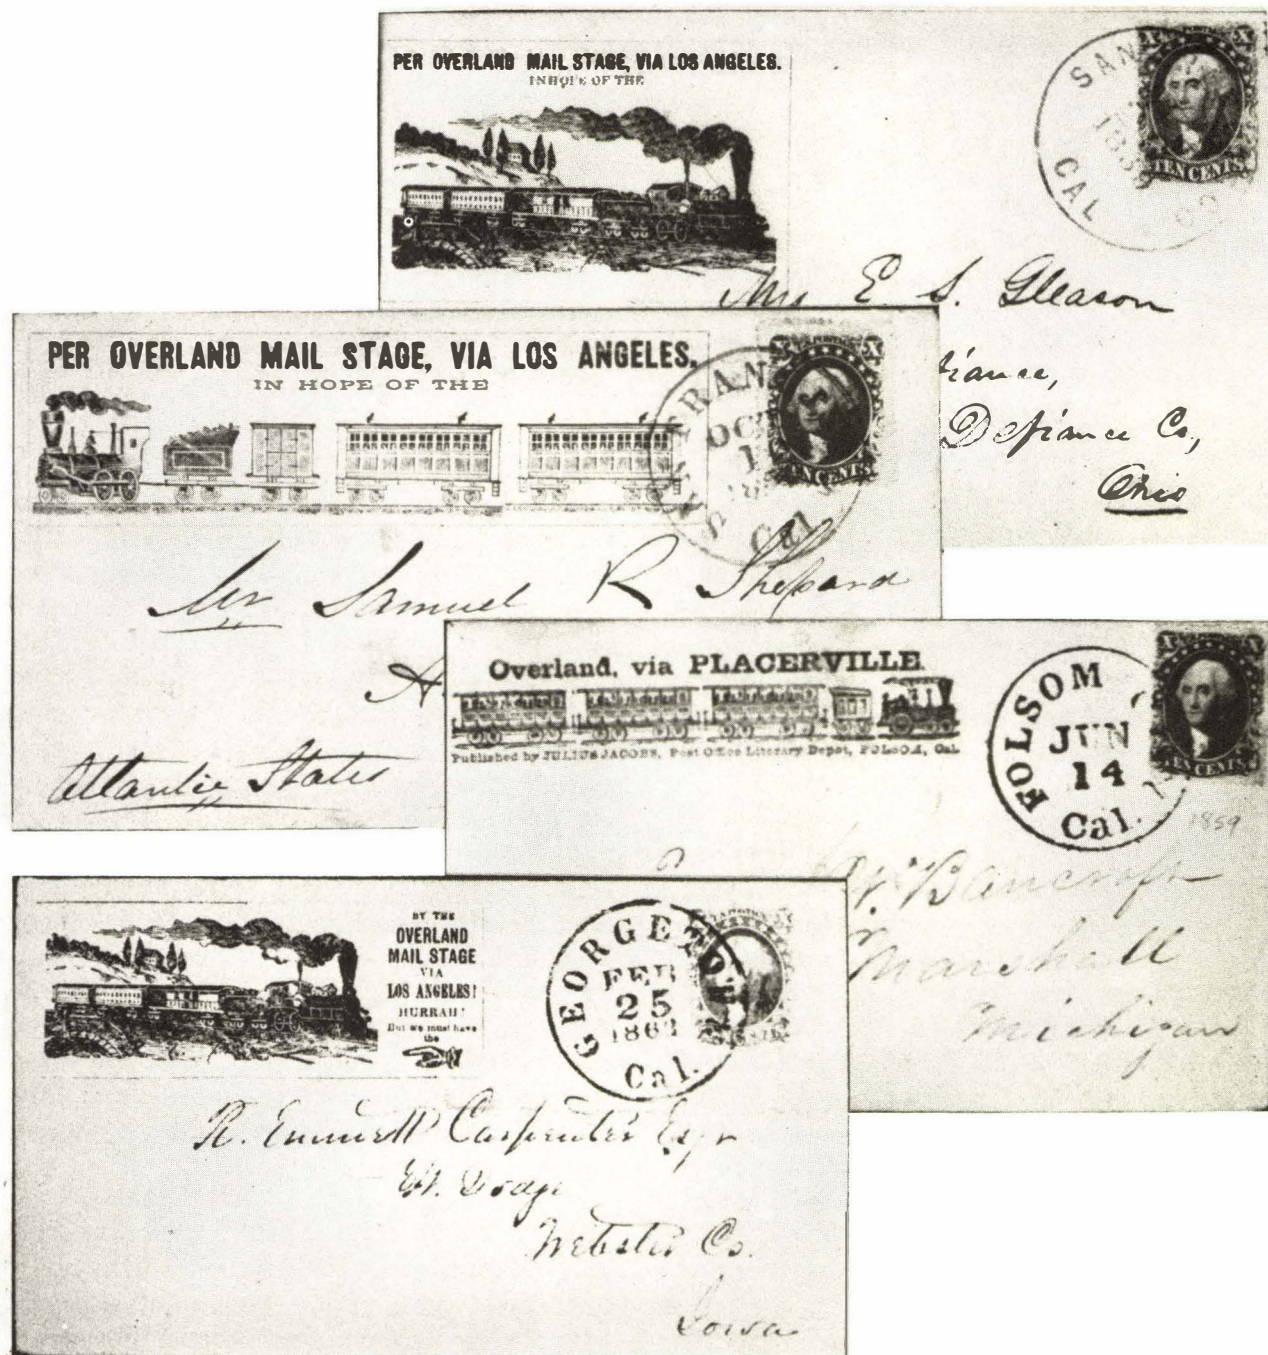 PER OVERLAND MAIL STAGE, VIA LOS ANGELES.
IN HOPE OF THE
SAN
CAL
TEN CENTS
Mrs E. S. Gleason
fiance,
Defiance Co,
Ohio
PER OVERLAND MAIL STAGE, VIA LOS ANGELES.
IN HOPE OF THE
FRAN
OC
1
Cal
TEN CENTS
Mr Samuel R Shepard
Atlantic States
Overland, via PLACERVILLE.
Published by JULIUS JACOBS, Post Office Literary Depot, FOLSOM, Cal.
FOLSOM
JUN
14
Cal.
TEN CENTS
1859
W. Bancroft
Marshall
Michigan
BY THE
OVERLAND
MAIL STAGE
VIA
LOS ANGELES!
HURRAH!
But we must have
the
GEORGETO
FEB
25
Cal.
R. Emmett Carpenter Esqr
Ft. Dodge
Webster Co.
Iowa